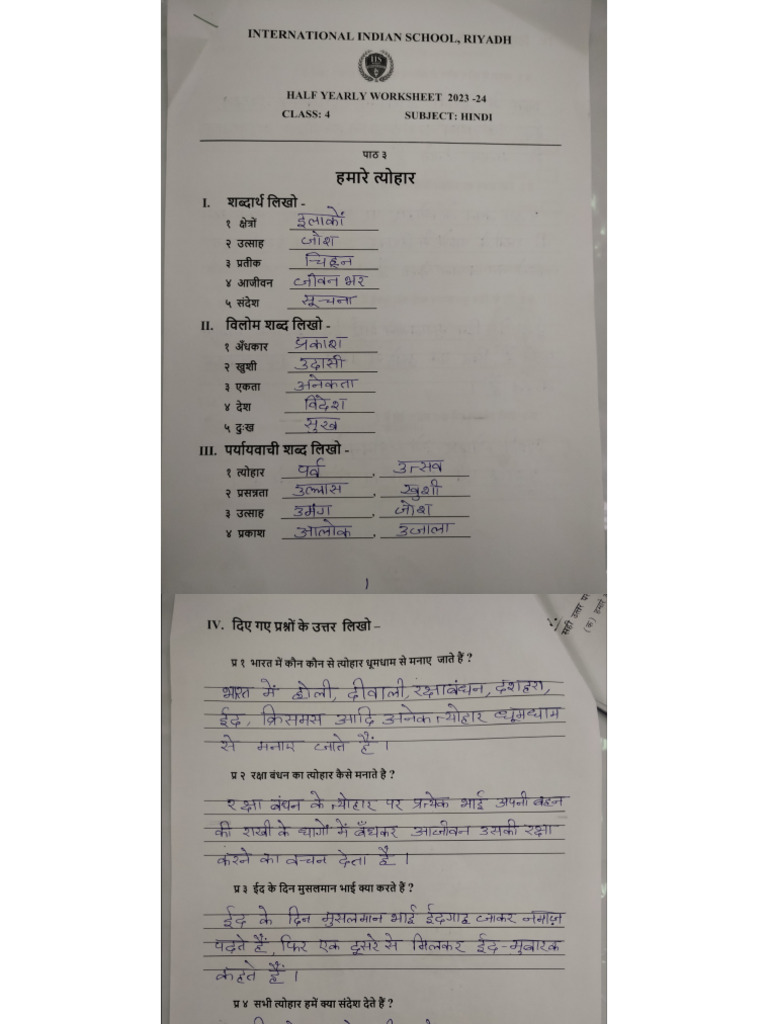 INTERNATIONAL INDIAN SCHOOL, RIYADH
IIS
HALF YEARLY WORKSHEET 2023 -24
CLASS: 4 SUBJECT: HINDI
पाठ ३
हमारे त्योहार
I. शब्दार्थ लिखो -
१ क्षेत्रों इलाकों
२ उत्साह जोश
३ प्रतीक चिह्न
४ आजीवन जीवन भर
५ संदेश सूचना
II. विलोम शब्द लिखो -
१ अँधकार प्रकाश
२ खुशी उदासी
३ एकता अनेकता
४ देश विदेश
५ दुःख सुख
III. पर्यायवाची शब्द लिखो -
१ त्योहार पर्व , उत्सव
२ प्रसन्नता उल्लास , खुशी
३ उत्साह उमंग , जोश
४ प्रकाश आलोक , उजाला
1
IV. दिए गए प्रश्नों के उत्तर लिखो –
प्र १ भारत में कौन कौन से त्योहार धूमधाम से मनाए जाते हैं ?
भारत में होली, दीवाली, रक्षाबंधन, दशहरा,
ईद, क्रिसमस आदि अनेक त्योहार धूमधाम
से मनाए जाते हैं ।
प्र २ रक्षा बंधन का त्योहार कैसे मनाते है ?
रक्षा बंधन के त्योहार पर प्रत्येक भाई अपनी बहन
की राखी के धागों में बँधकर आजीवन उसकी रक्षा
करने का वचन देता है ।
प्र ३ ईद के दिन मुसलमान भाई क्या करते हैं ?
ईद के दिन मुसलमान भाई ईदगाह जाकर नमाज़
पढ़ते हैं, फिर एक दूसरे से मिलकर ईद-मुबारक
कहते हैं ।
प्र ४ सभी त्योहार हमें क्या संदेश देते हैं ?
सही उत्तर
(क) हमारे